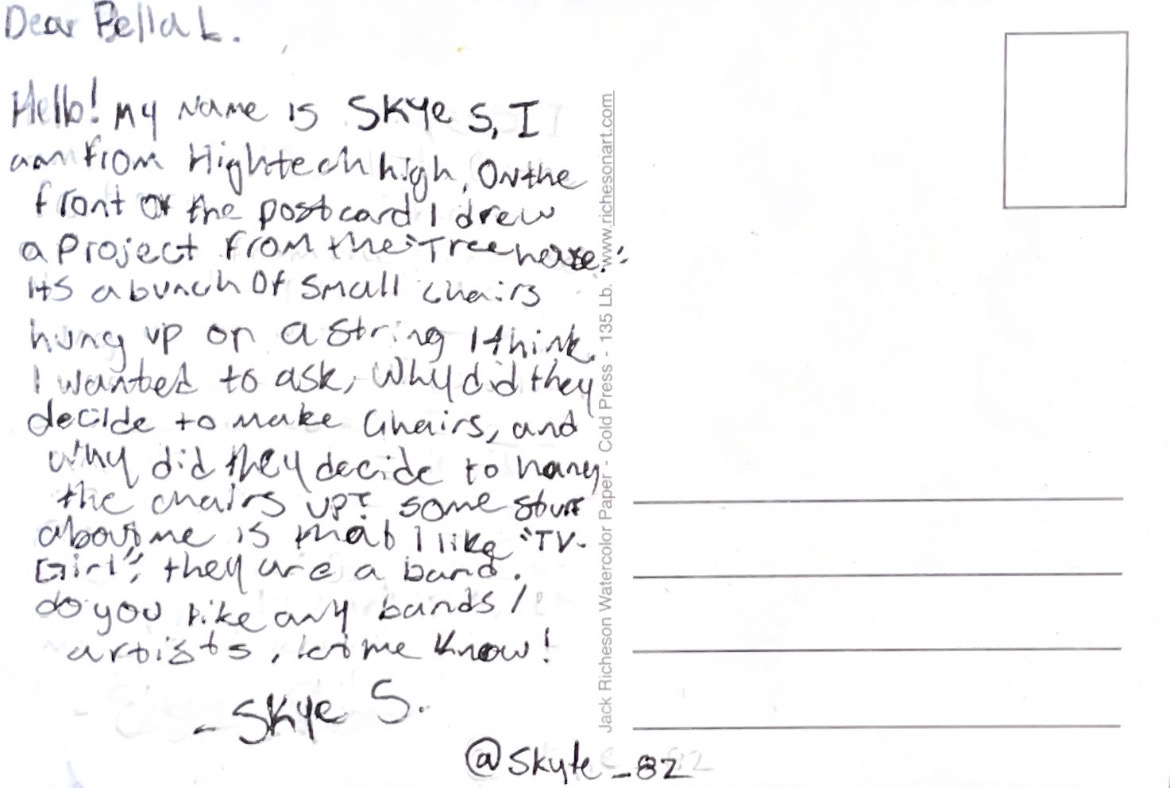 Dear Bella L.
Hello! my name is Skye S, I
am from Hightech high. On the
front of the postcard I drew
a Project from the "Tree house."
its a bunch of small chairs
hung up on a string I think.
I wanted to ask, Why did they
decide to make Chairs, and
why did they decide to hang
the chairs up? some stuff
about me is that I like "TV-
Girl", they are a band.
do you like any bands/
artists, let me know!
- Skye S.
@skyte_82
Jack Richeson Watercolor Paper - Cold Press - 135 Lb. www.richesonart.com